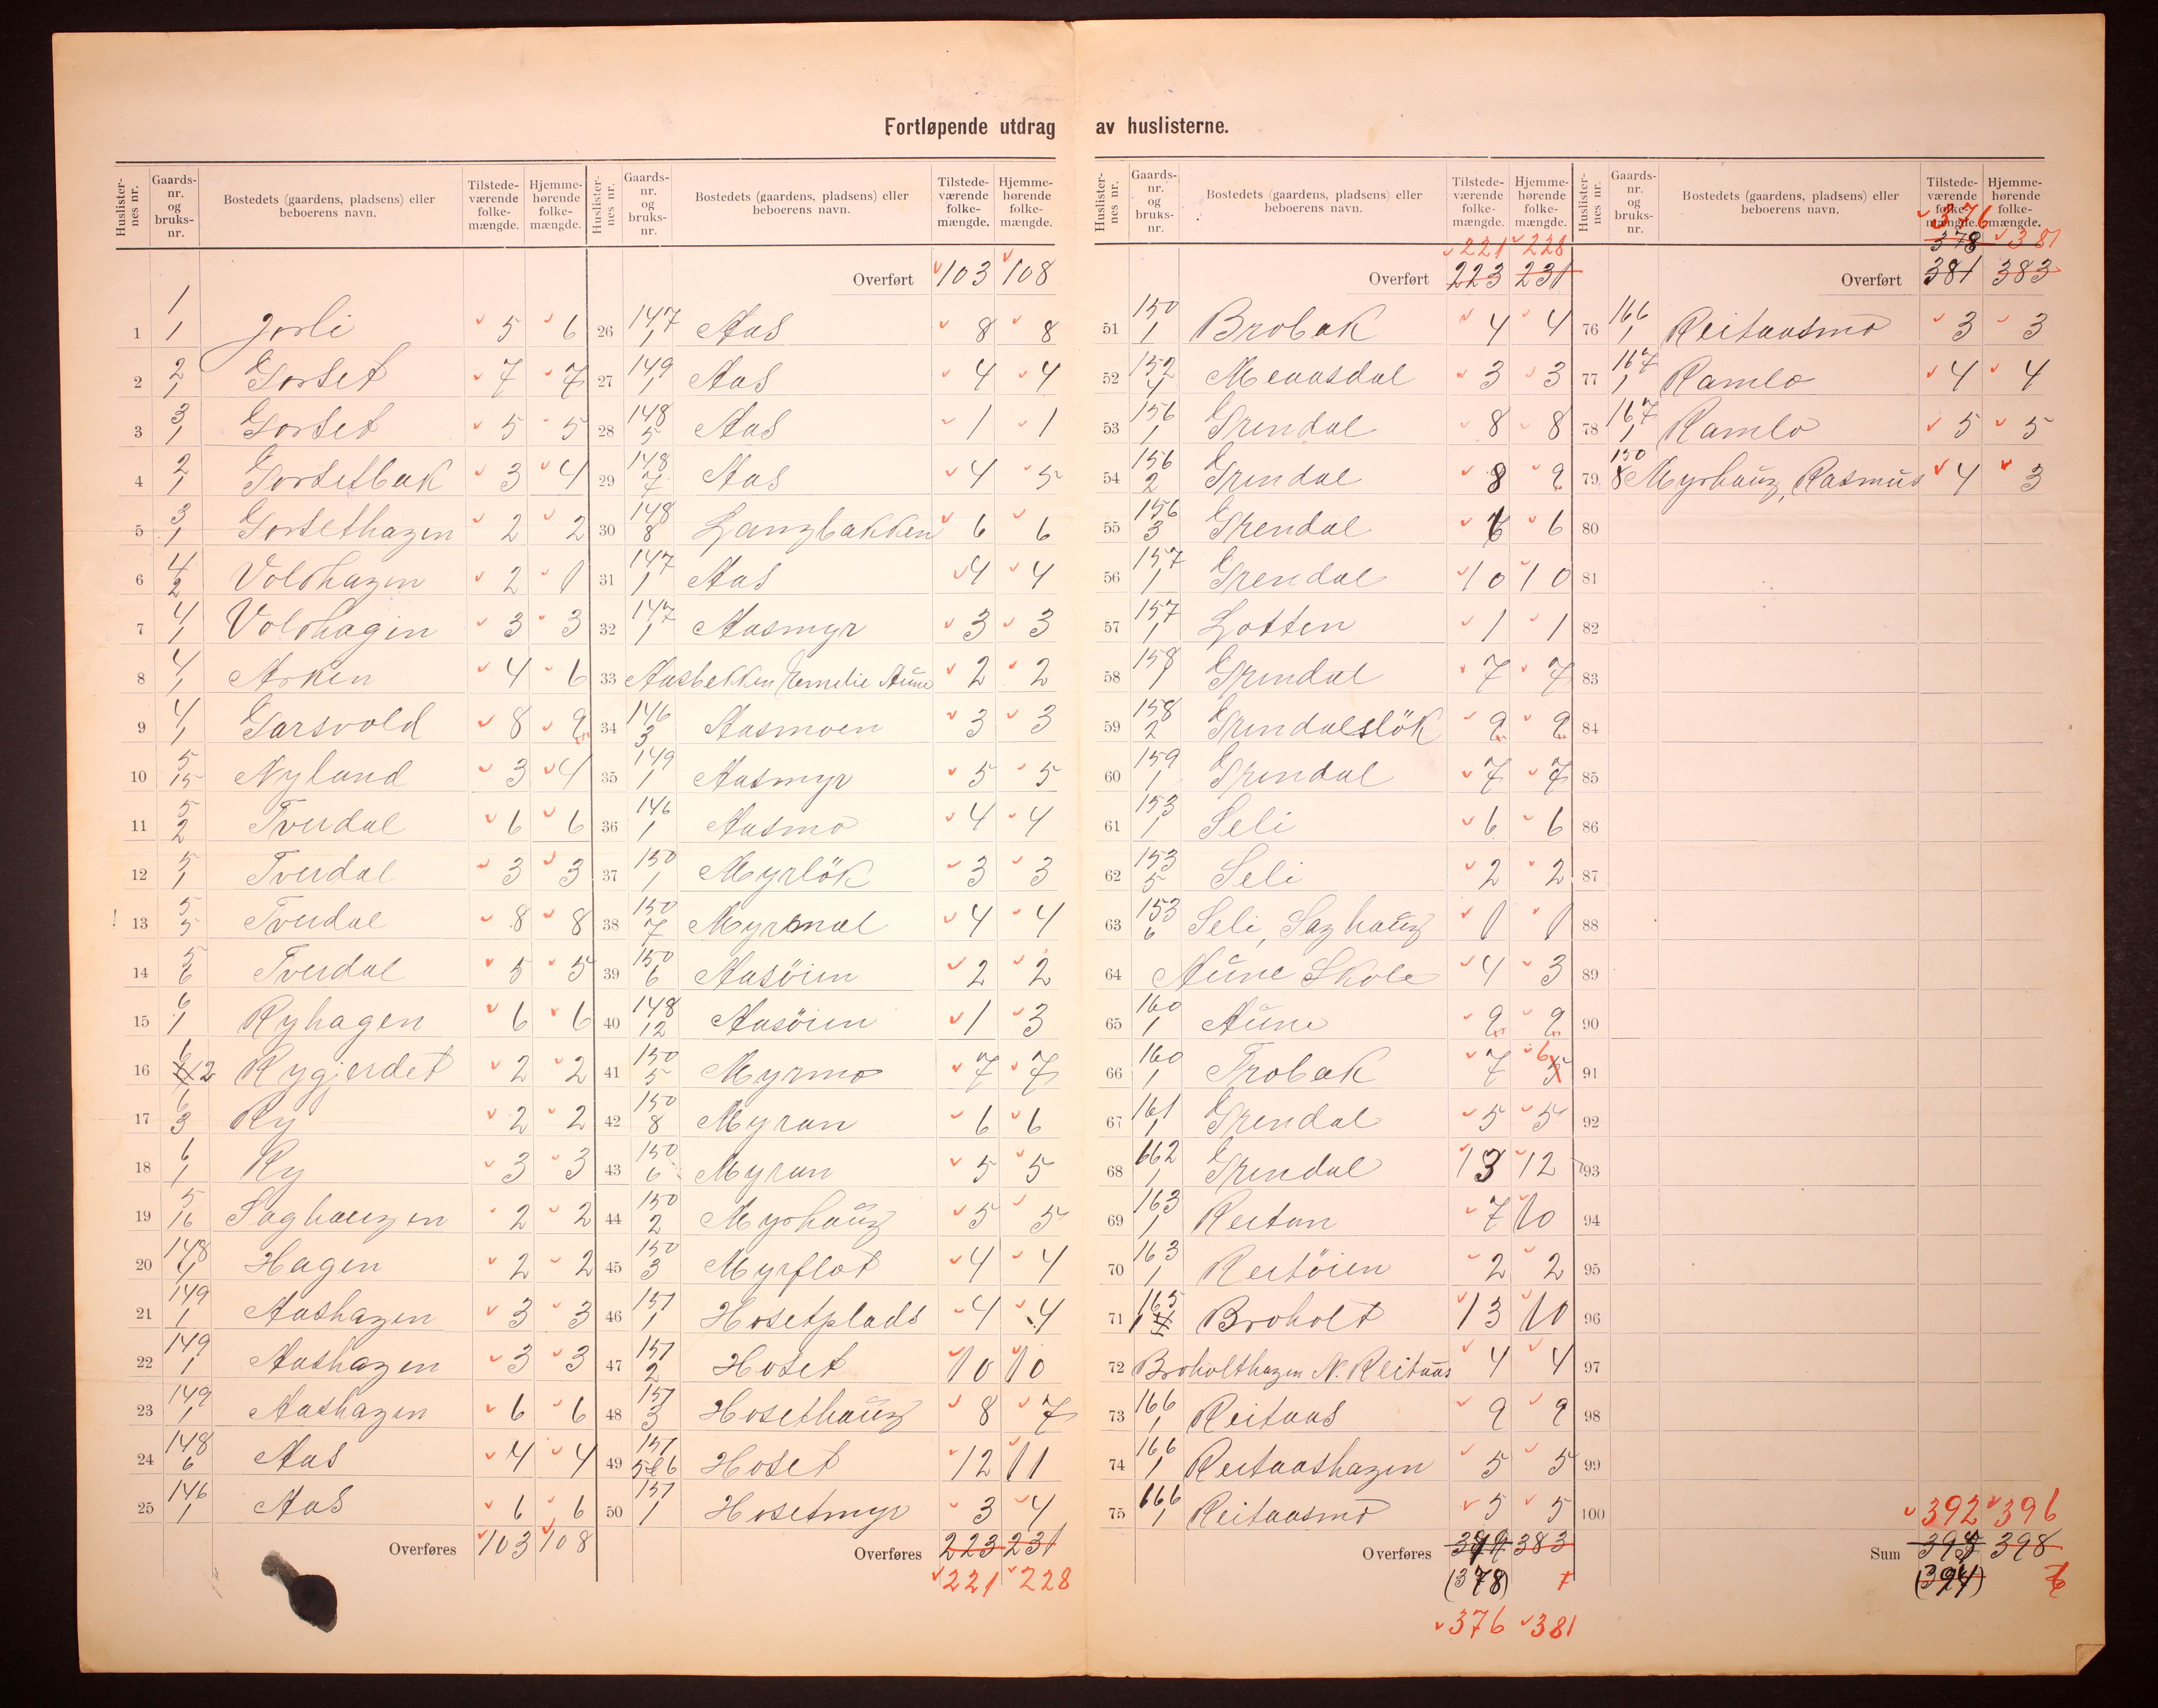 Fortløpende utdrag av huslisterne.
Huslisternes nr. Gaards-nr. og bruks-nr. Bostedets (gaardens, pladsens) eller beboerens navn. Tilstedeværende folkemængde. Hjemmehørende folkemængde.
1 1/1 Jorli 5 6
2 2/1 Gorset 7 7
3 3/1 Gorset 5 5
4 2/1 Gorsetbak 3 4
5 3/1 Gorsethagen 2 2
6 4/2 Voldhagen 2 1
7 4/1 Voldhagen 3 3
8 4/1 Arken 4 6
9 4/1 Garsvold 8 9
10 5/15 Nyland 3 4
11 5/2 Tverdal 6 6
12 5/1 Tverdal 3 3
13 5/5 Tverdal 8 8
14 5/6 Tverdal 5 5
15 6/1 Ryhagen 6 6
16 6/2 Rygjerdet 2 2
17 6/3 Ry 2 2
18 6/1 Ry 3 3
19 5/16 Saghaugen 2 2
20 148/4 Hagen 2 2
21 149/1 Aashagen 3 3
22 149/1 Aashagen 3 3
23 149/1 Aashagen 6 6
24 148/6 Aas 4 4
25 146/1 Aas 6 6
Overføres 103 108
Huslisternes nr. Gaards-nr. og bruks-nr. Bostedets (gaardens, pladsens) eller beboerens navn. Tilstedeværende folkemængde. Hjemmehørende folkemængde.
Overført 103 108
26 147/1 Aas 8 8
27 149/1 Aas 4 4
28 148/5 Aas 1 1
29 148/7 Aas 4 5
30 148/8 Langbakken 6 6
31 147/1 Aas 4 4
32 147/1 Aasmyr 3 3
33 Aasbekken Emelie Aune 2 2
34 146/3 Aasmoen 3 3
35 149/1 Aasmyr 5 5
36 146/1 Aasmo 4 4
37 150/1 Myrlök 3 3
38 150/7 Myrmal 4 4
39 150/6 Aasöien 2 2
40 148/12 Aasöien 1 3
41 150/5 Myrmo 7 7
42 150/8 Myran 6 6
43 150/6 Myran 5 5
44 150/2 Myrhaug 5 5
45 150/3 Myrflot 4 4
46 151/1 Hosetplads 4 4
47 151/2 Hoset 10 10
48 151/3 Hosethaug 8 7
49 151/5 & 6 Hoset 12 11
50 151/1 Hosetmyr 3 4
Overføres 223 231
221 228
Huslisternes nr. Gaards-nr. og bruks-nr. Bostedets (gaardens, pladsens) eller beboerens navn. Tilstedeværende folkemængde. Hjemmehørende folkemængde.
221 228
Overført 223 231
51 150/1 Brobak 4 4
52 152/4 Meaasdal 3 3
53 156/1 Grendal 8 8
54 156/2 Grendal 8 9
55 156/3 Grendal 6 6
56 157/1 Grendal 10 10
57 157/1 Lotten 1 1
58 158/1 Grendal 7 7
59 158/2 Grendalslök 9 9
60 159/1 Grendal 7 7
61 153/1 Seli 6 6
62 153/5 Seli 2 2
63 153/6 Seli, Saghaug 1 1
64 Aune Skole 4 3
65 160/1 Aune 9 9
66 160/1 Trobak 7 6
67 161/1 Grendal 5 5
68 162/1 Grendal 13 12
69 163/1 Reitan 7 10
70 163/1 Reitöien 2 2
71 165/1 Broholt 13 10
72 Broholthagen N. Reitaas 4 4
73 166/1 Reitaas 9 9
74 166/1 Reitaashagen 5 5
75 166/1 Reitaasmo 5 5
Overføres 383
(378)
376 381
Huslisternes nr. Gaards-nr. og bruks-nr. Bostedets (gaardens, pladsens) eller beboerens navn. Tilstedeværende folkemængde. Hjemmehørende folkemængde.
376
378 381
Overført 381 383
76 166/1 Reitaasmo 3 3
77 167/1 Ramlo 4 4
78 167/1 Ramlo 5 5
79 150/8 Myrhaug, Rasmus 4 3
80
81
82
83
84
85
86
87
88
89
90
91
92
93
94
95
96
97
98
99
100
392 396
Sum 398
(394)